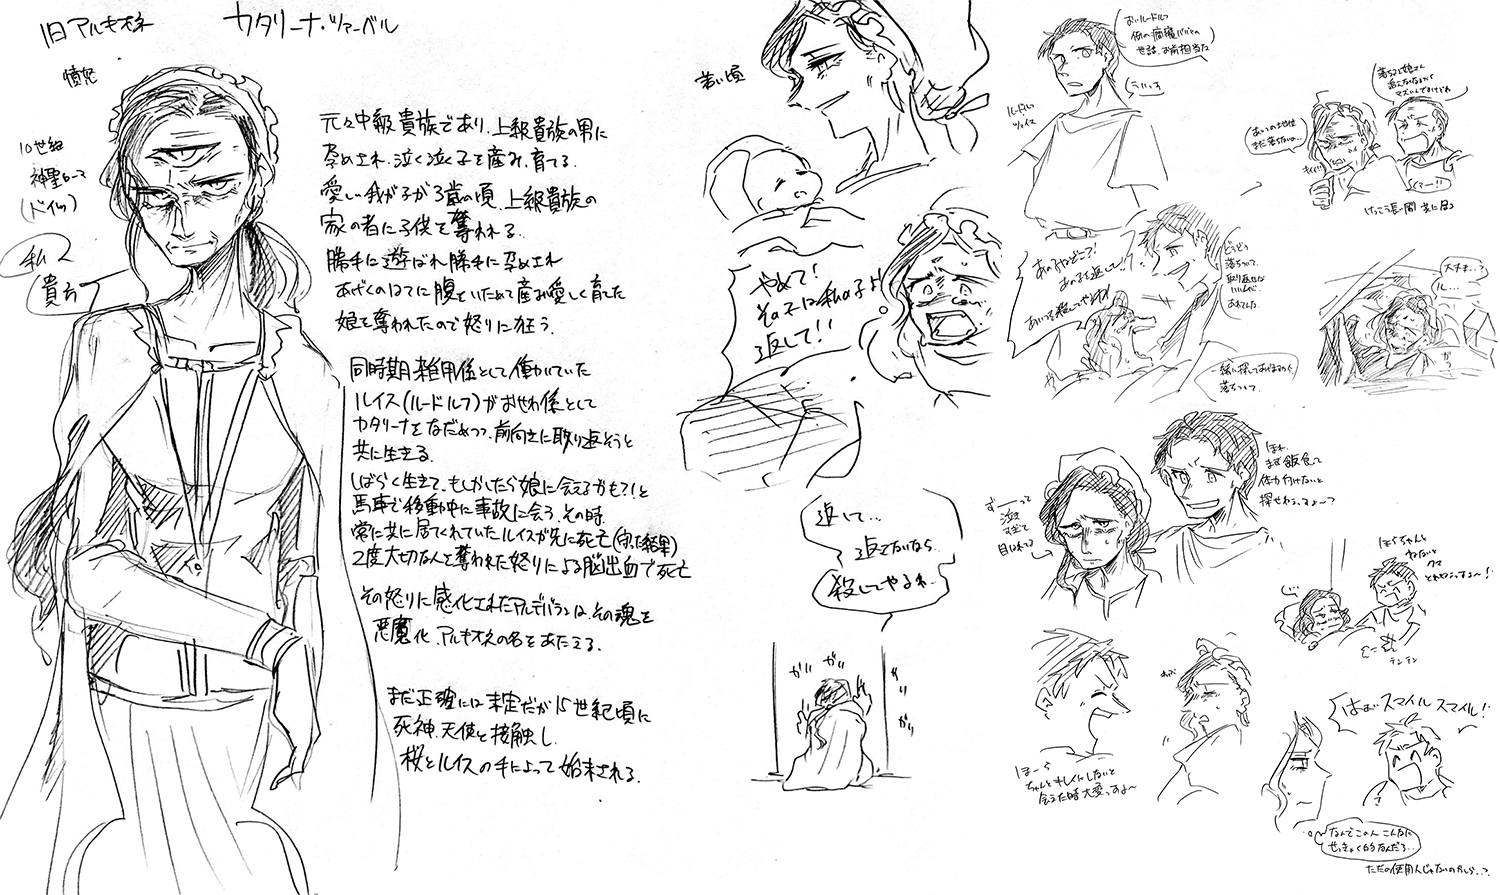 旧アルキオネ
カタリーナ・ツァーベル
憤怒
10世紀
神聖ローマ
(ドイツ)
私
貴方
元々中級貴族であり、上級貴族の男に
孕めされ、泣く泣く子を産み、育てる。
愛しい我が子が3歳の頃、上級貴族の
家の者に子供を奪われる。
勝手に遊ばれ勝手に孕めされ
あげくのはてに腹をいためて産み愛しく育てた
娘を奪われたので怒りに狂う。
同時期雑用係として働いていた
ルイス(ルードルフ)がおせわ係として
カタリーナをなだめつつ、前向きに取り返そうと
共に生きる。
しばらく生きて、もしかしたら娘に会えるかも?!と
馬車で移動中に事故に会う。その時
常に共に居てくれていたルイスが先に死亡(守った結果)
2度大切なんを奪われた怒りによる脳出血で死亡
その怒りに感化されたアルデバランは、その魂を
悪魔化、アルキオネの名をあたえる。
まだ正確には未定だが15世紀頃に
死神、天使と接触し、
桜とルイスの手によって始末される。
若い頃
やめて!
その子は私の子よ!
返して!!
返して…
返さないなら
殺してやるわ
ガリ
ガリ
ガリ
ガリ
おいルードルフ
例の癇癪ババアの
世話、お前担当な
ういっす
ルードルフ
ツヴァイス
あの子はどこ?!
あの子を返して!
あいつを殺してやるわ!
どうどう
落ちついて、
取り返せば
いいんで
あれでした
一緒に探してあげますから
落ちついて、
けっこう長い間共に居る
大丈夫…?
ル…
ずーーって
泣き
すぎて
目はれてる
ほれ、
まず飯食って
体力付けないと
探せねえっすよ〜?
ほらちゃんと
ねないと
クマ
とれねえっすよ〜!
テンテン
ほーら
ちゃんとキレイにしないと
会えた時大変っすよ〜
はいスマイルスマイル!
なんでこの人こんなに
せっきょく的なんだろ…
ただの使用人じゃないのかしら…?